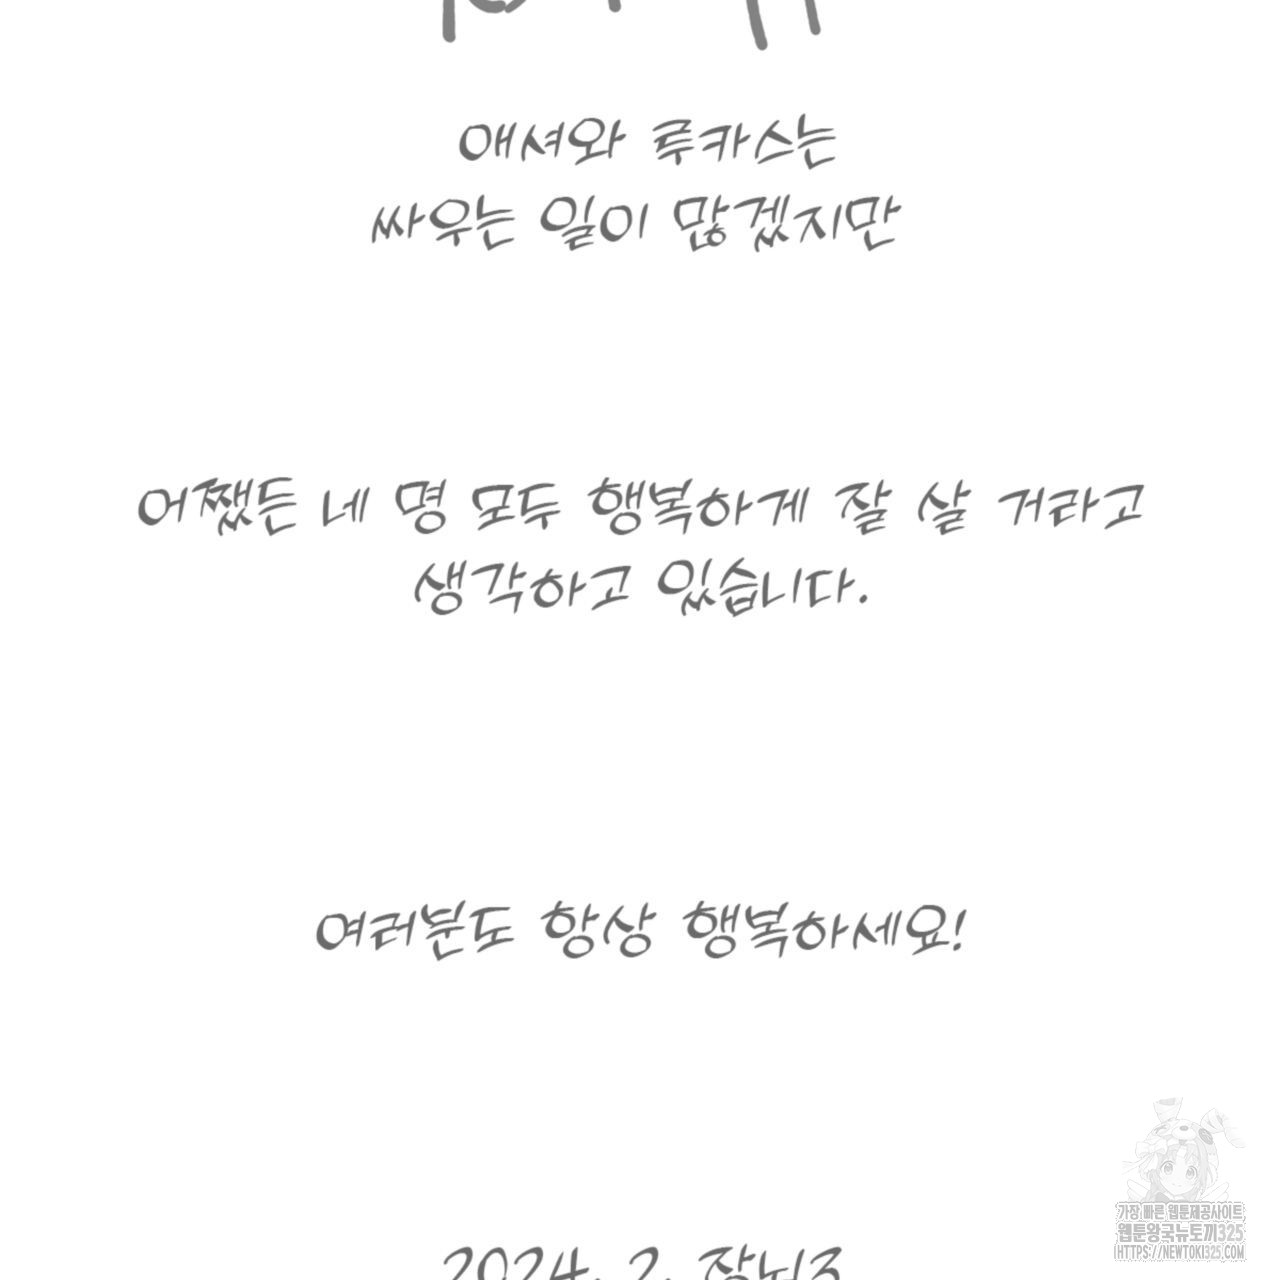 애셔와 루카스는
싸우는 일이 많겠지만
어쨌든 네 명 모두 행복하게 잘 살 거라고
생각하고 있습니다.
여러분도 항상 행복하세요!
가장 빠른 웹툰제공사이트
웹툰왕국뉴토끼325
HTTPS://NEWTOKI325.COM
2024. 2.